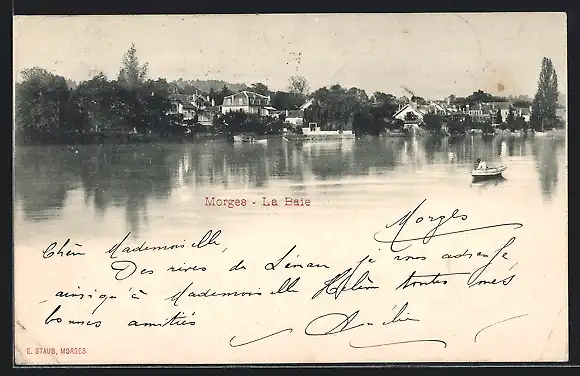 Morges - La Baie
Morges
Chère Mademoiselle,
Des rives du Léman je vous adresse
ainsi qu'à Mademoiselle Hélène toutes mes
bonnes amitiés
Amélie
E. STAUB, MORGES